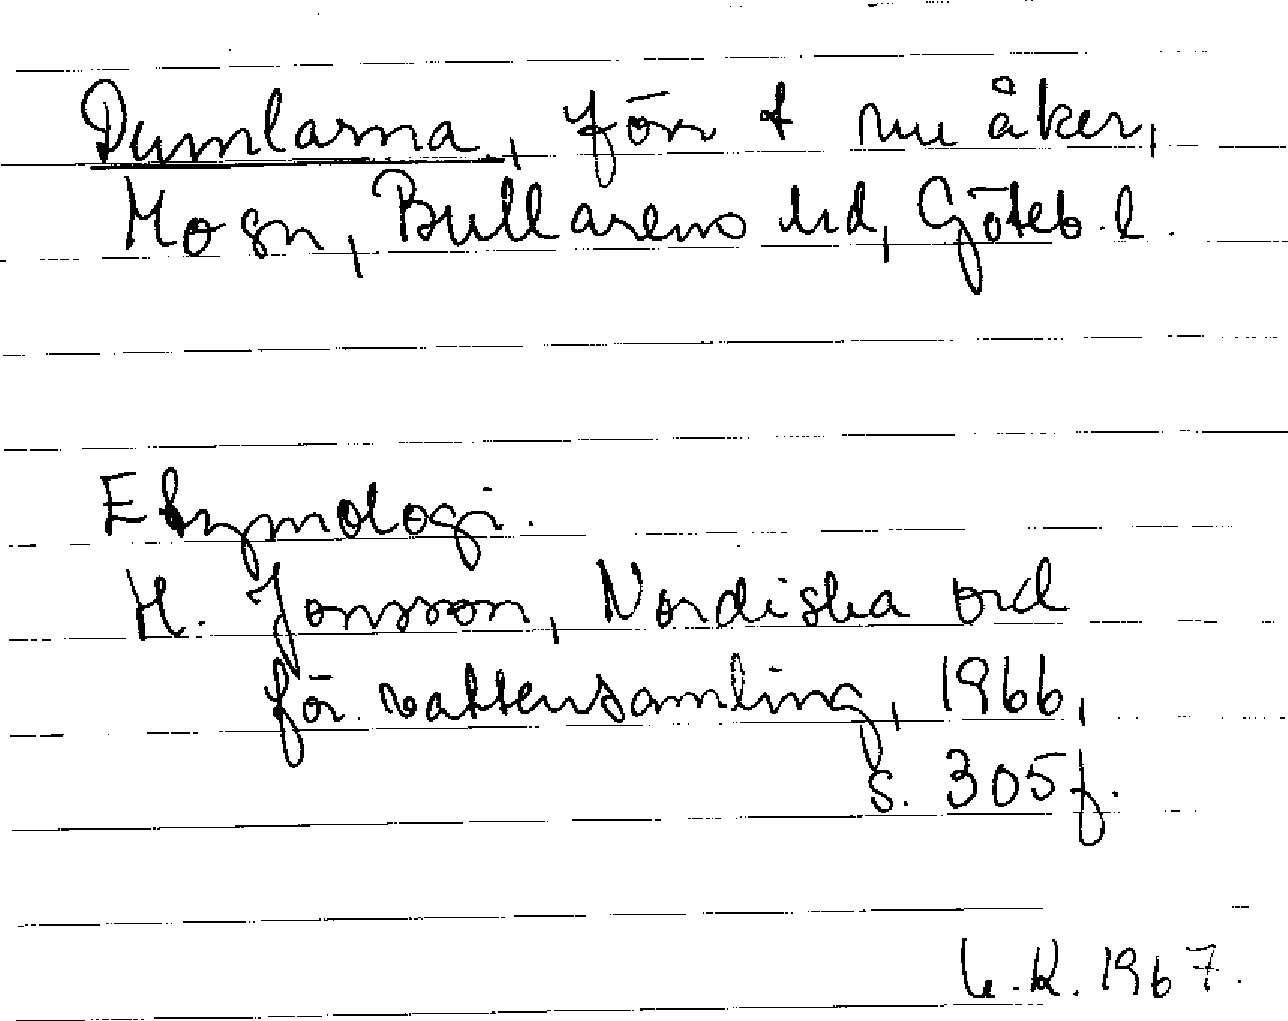 Dumlarna, förr t nu åker,
Mo sn, Bullarens hd, Göteb. l.
Etymologi.
H. Jonsson, Nordiska ord
för vattensamling, 1966,
s. 305 f.
K. 1967.